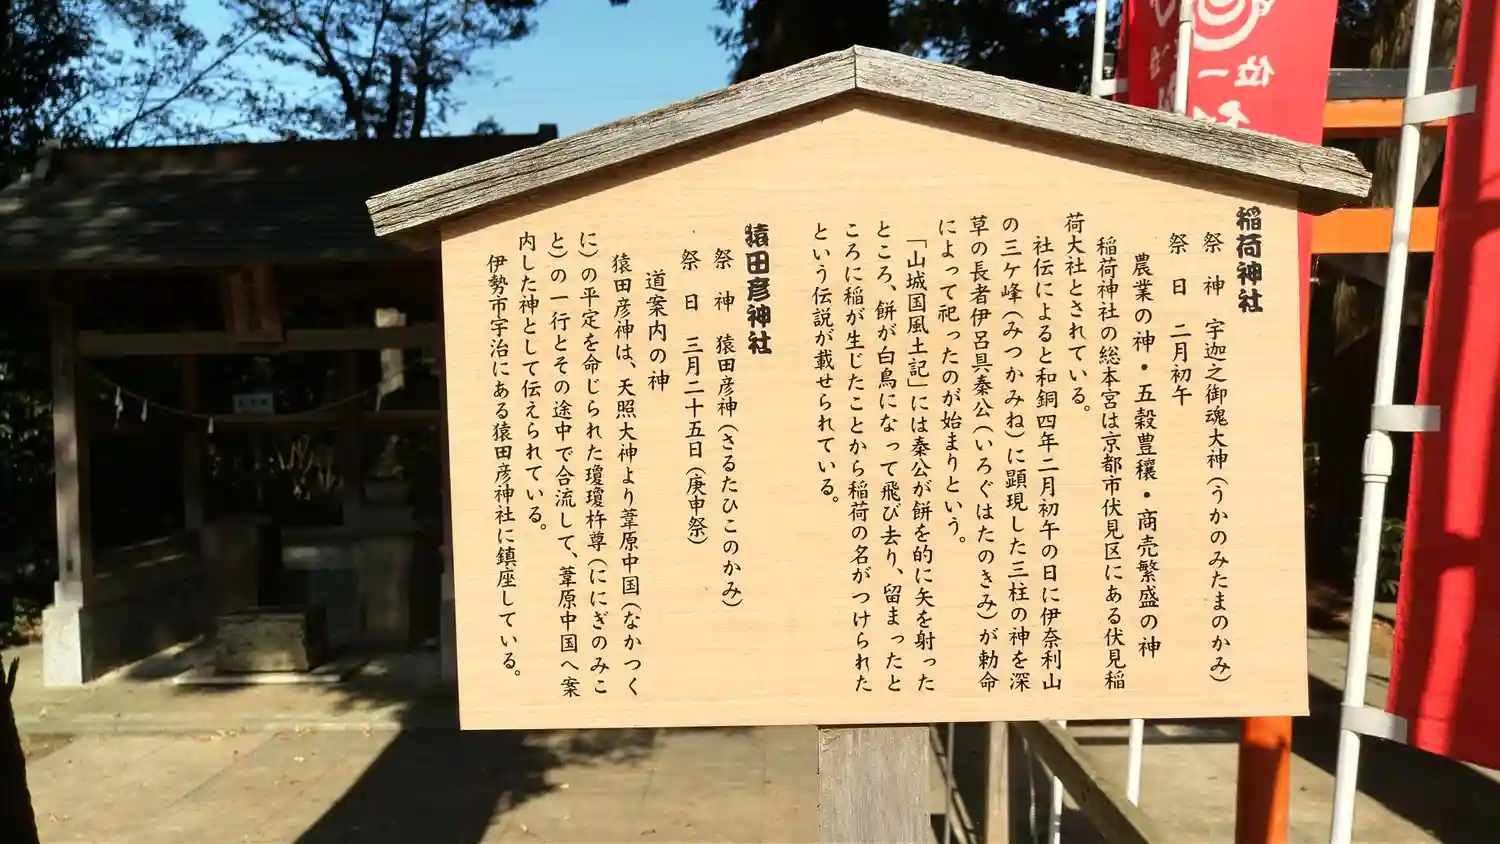 稲荷神社
祭　神　宇迦之御魂大神(うかのみたまのかみ)
祭　日　二月初午
農業の神・五穀豊穣・商売繁盛の神
稲荷神社の総本宮は京都市伏見区にある伏見稲
荷大社とされている。
社伝によると和銅四年二月初午の日に伊奈利山
の三ケ峰(みつかみね)に顕現した三柱の神を深
草の長者伊呂具秦公(いろぐはたのきみ)が勅命
によって祀ったのが始まりという。
「山城国風土記」には秦公が餅を的に矢を射った
ところ、餅が白鳥になって飛び去り、留まったと
ころに稲が生じたことから稲荷の名がつけられた
という伝説が載せられている。
猿田彦神社
祭　神　猿田彦神(さるたひこのかみ)
祭　日　三月二十五日(庚申祭)
道案内の神
猿田彦神は、天照大神より葦原中国(なかつく
に)の平定を命じられた瓊瓊杵尊(ににぎのみこ
と)の一行とその途中で合流して、葦原中国へ案
内した神として伝えられている。
伊勢市宇治にある猿田彦神社に鎮座している。
位一